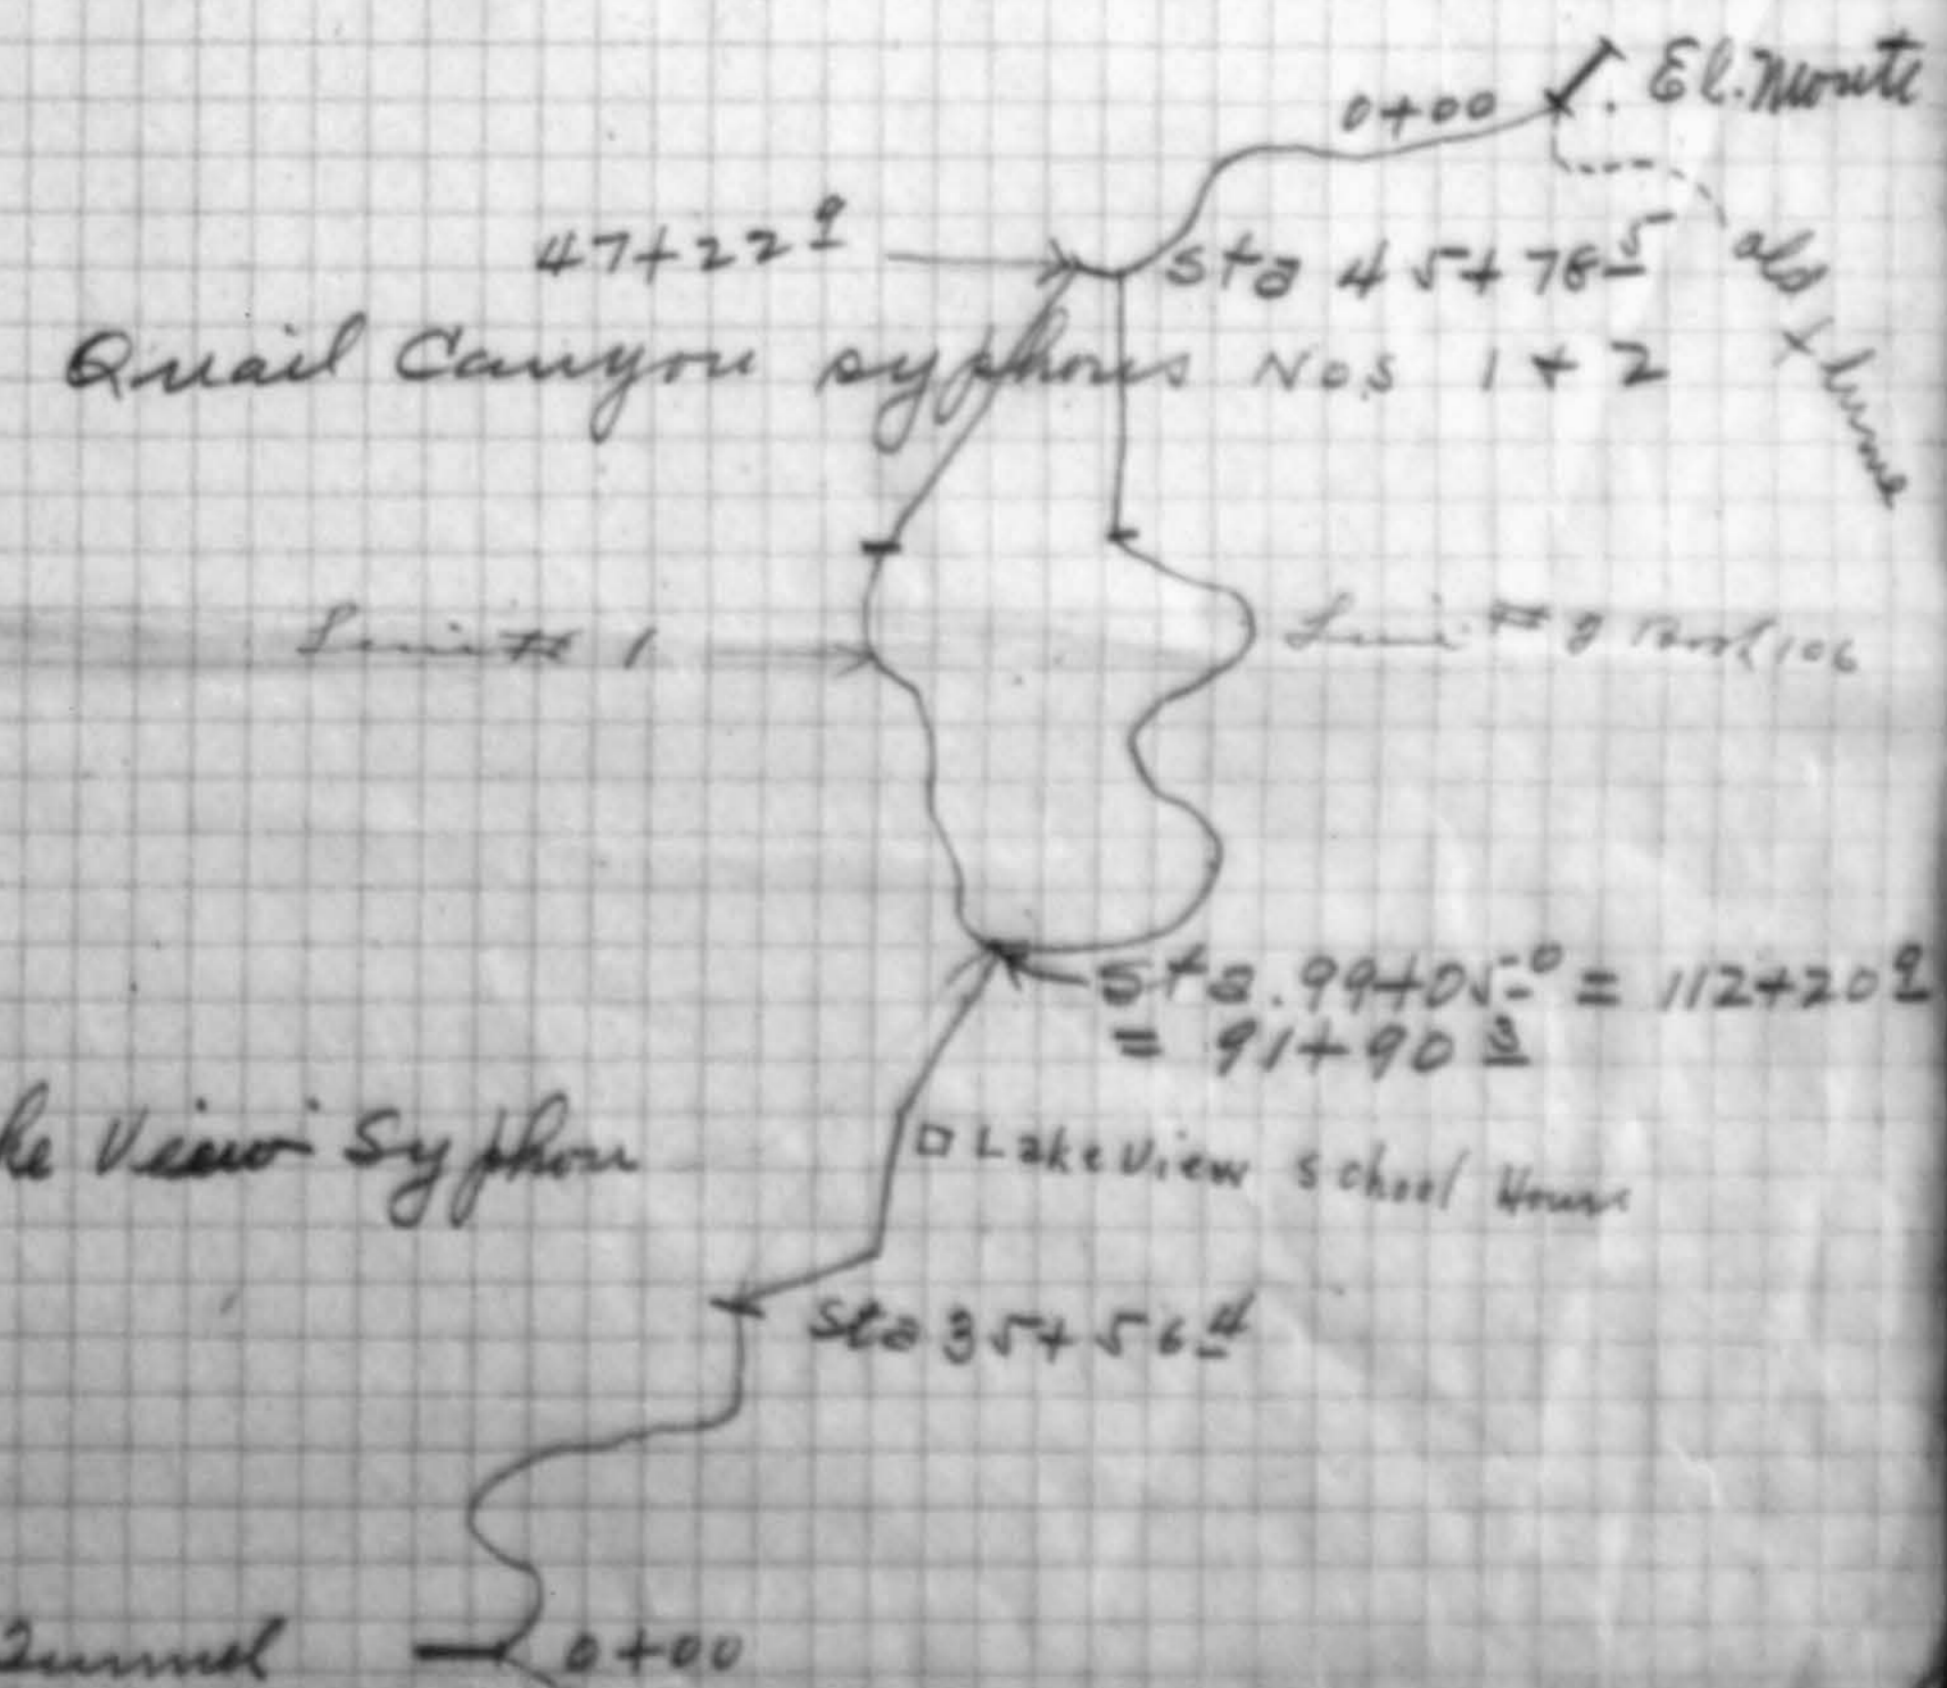 0+00 El. Monte
old flume
47+22 9 sta 45+78 5
Quail Canyon syphons Nos 1 + 2
Line # 1
Line # 2 Book 106
Sta. 99+05 0 = 112+20 9
= 91+90 3
ke View Syphon
Lake View School House
Sta 35+56 4
Tunnel 0+00